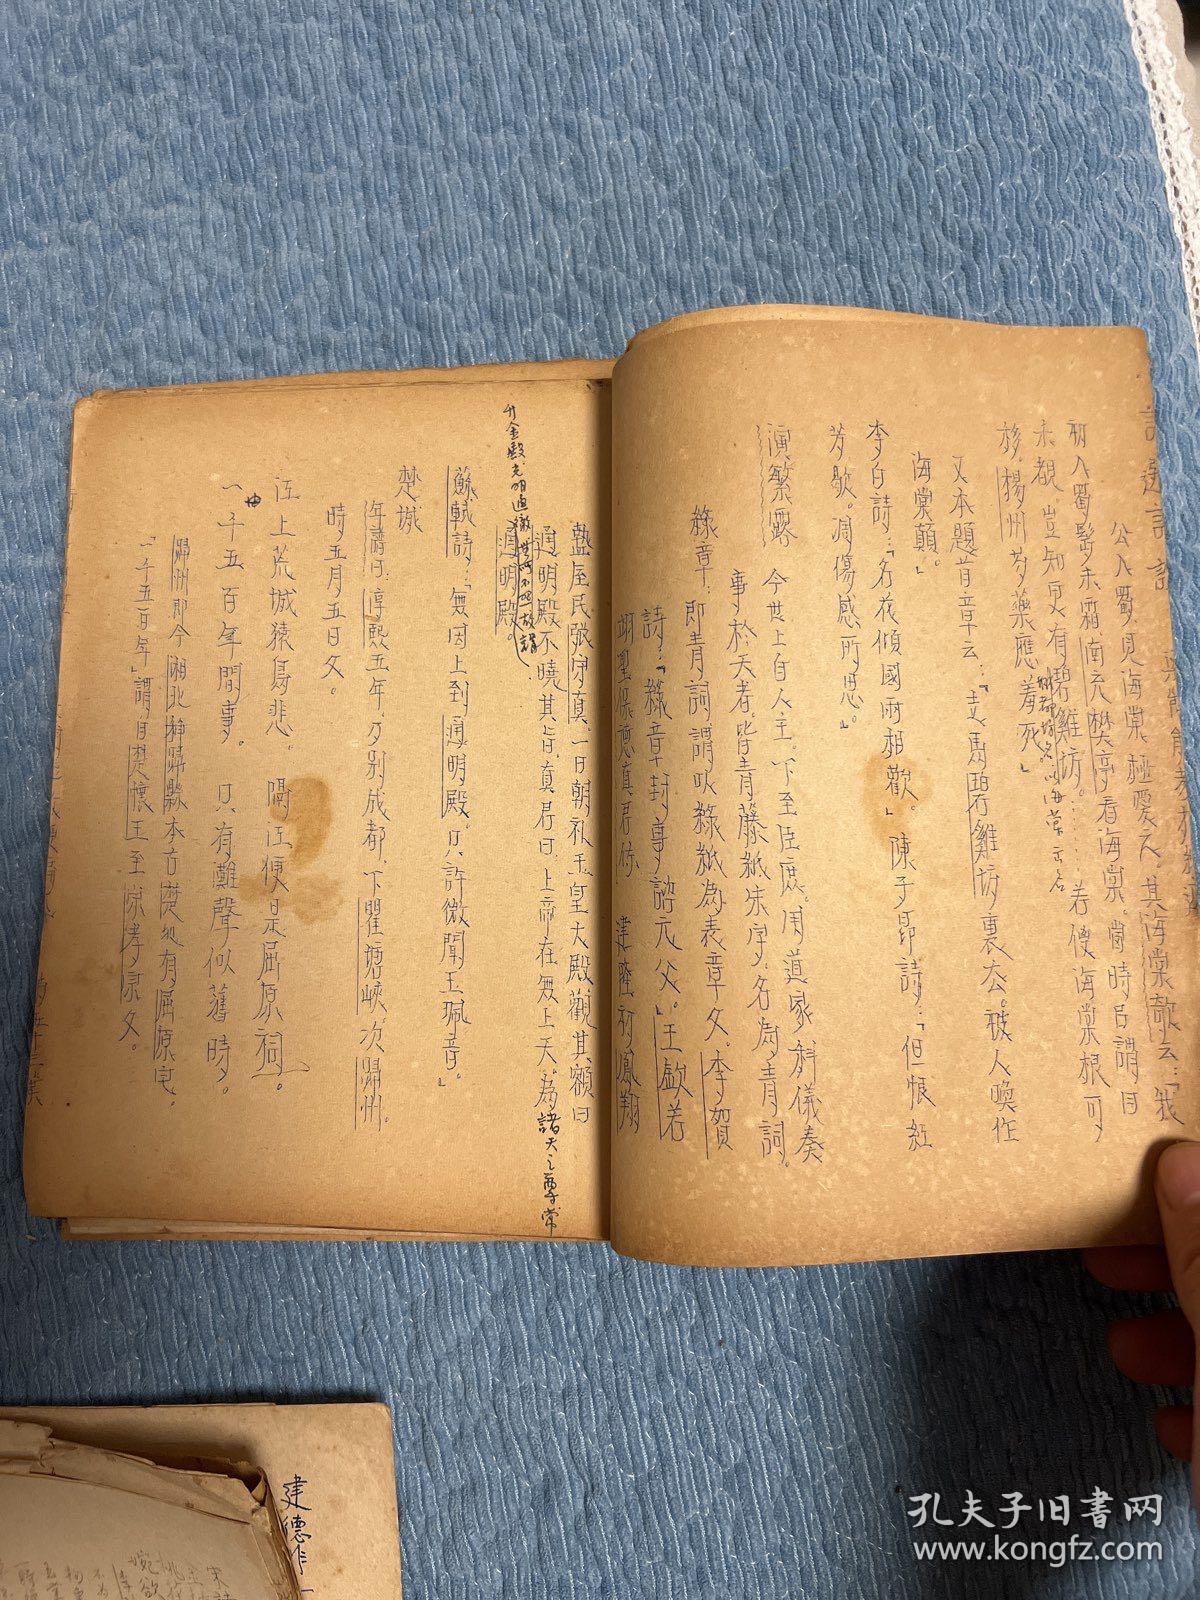 公入蜀見海棠極愛之其海棠歌云：「我
初入蜀鬢未霜，南充樊亭看海棠。當時已謂目
未覩，豈知更有碧雞坊。……若使海棠根可
移，揚州芍藥應羞死」
又本題首章云：「走馬碧雞坊裏去。被人喚作
海棠顛。」
李白詩：「名花傾國兩相歡。」陳子昂詩：「但恨紅
芳歇。凋傷感所思。」
演繁露
今世上自人主。下至臣庶。用道家科儀奏
事於天者。皆青藤紙朱字。名為青詞。
綠章：
即青詞謂以綠紙為表章文。李賀
詩：「綠章封事諮元父。」王欽若
翊聖保德真君傳 建隆初鳳翔
盩厔民張守真，一日朝礼玉皇大殿觀其額曰
通明殿不曉其旨，真君曰上帝在無上天。為諸天之尊常
升金殿光明通徹
通明殿。
蘇軾詩：「無因上到通明殿。只許微聞玉珮音。」
楚城
年譜曰淳熙五年，乃別成都，下瞿塘峽，次歸州。
時五月五日文。
江上荒城猿鳥悲。隔江便是屈原祠。
一千五百年間事。只有灘聲似舊時。
歸州即今湖北秭歸縣本古楚地有屈原宅。
「一千五百年」謂自楚懷王至宋孝宗文。
建德作
孔夫子旧書网
www.kongfz.com